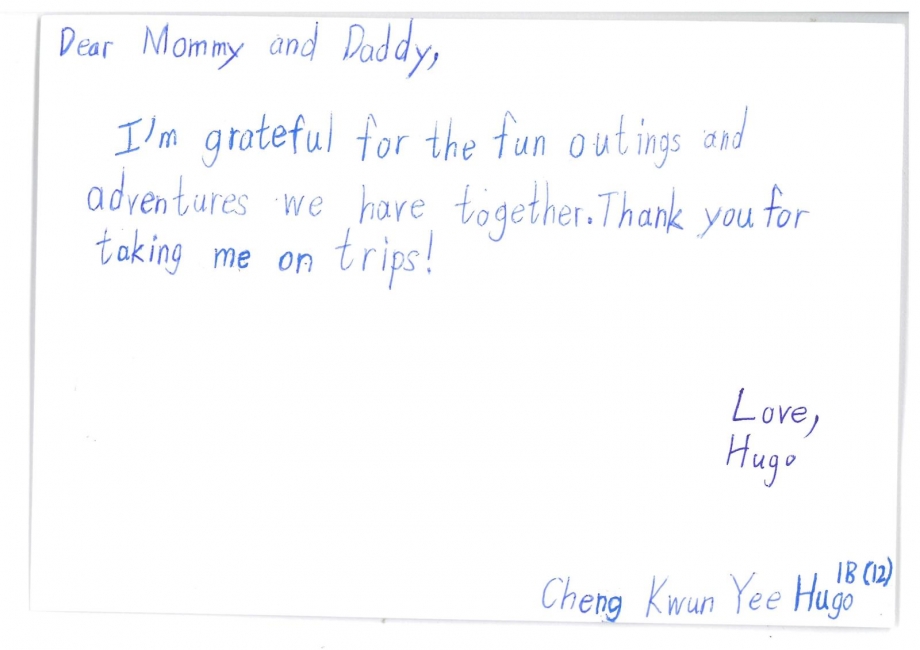 Dear Mommy and Daddy,
I'm grateful for the fun outings and
adventures we have together. Thank you for
taking me on trips!
Love,
Hugo
1B (12)
Cheng Kwun Yee Hugo